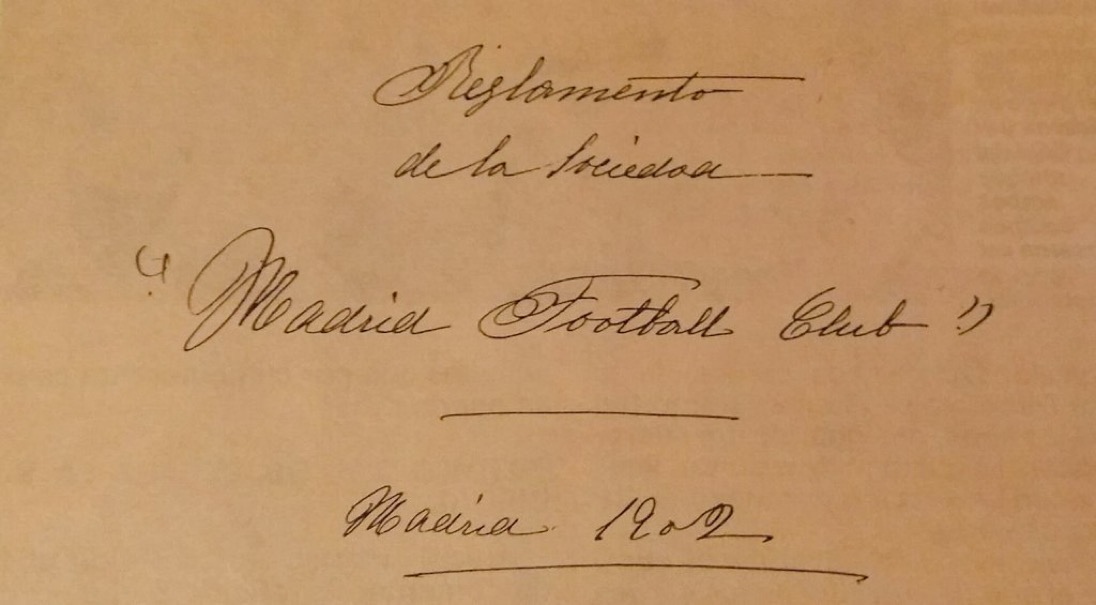 Reglamento
de la Sociedad
"Madrid Football Club"
Madrid 1902